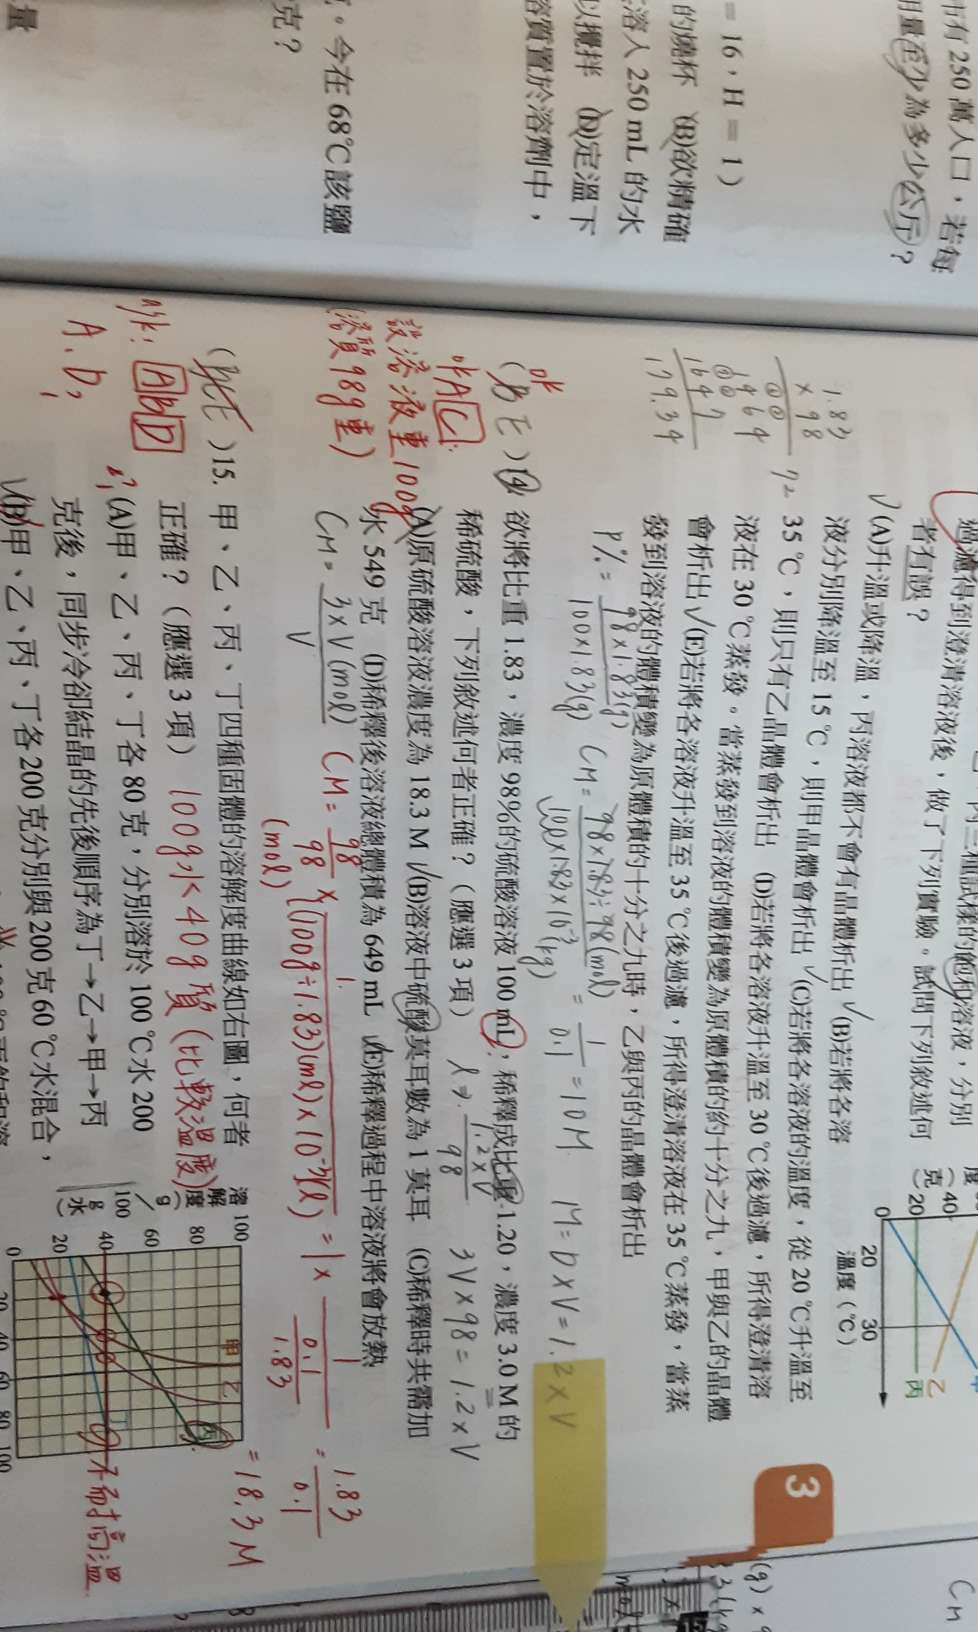 市有 250 萬人口，若每
用量至少為多少公斤？
= 16，H = 1）
的燒杯 (B)欲精確
溶入 250 mL 的水
以攪拌 (D)定溫下
溶質置於溶劑中，
。今在 68℃該鹽
克？
量
過濾得到澄清溶液後，做了下列實驗。試問下列敘述何
者有誤？
(A)升溫或降溫，丙溶液都不會有晶體析出 (B)若將各溶
液分別降溫至 15℃，則甲晶體會析出 (C)若將各溶液的溫度，從 20℃升溫至
35℃，則只有乙晶體會析出 (D)若將各溶液升溫至 30℃後過濾，所得澄清溶
液在 30℃蒸發。當蒸發到溶液的體積變為原體積的約十分之九，甲與乙的晶體
會析出 (E)若將各溶液升溫至 35℃後過濾，所得澄清溶液在 35℃蒸發，當蒸
發到溶液的體積變為原體積的十分之九時，乙與丙的晶體會析出
克 40
20
0
20 30
溫度（℃）
乙
丙
3
1.83
× 98
1464
1647
179.34
P% = 98×1.83g / 100×1.83g)
CM = 98×1.83÷98(mol) / 100×1.83×10⁻³(kg) = 1 / 0.1 = 10M
M = D×V = 1.2×V
(BE) 14. 欲將比重 1.83，濃度 98%的硫酸溶液 100 mL，稀釋成比重 1.20，濃度 3.0 M 的
稀硫酸，下列敘述何者正確？（應選 3 項）
1.2×V / 98
3V×98 = 1.2×V
(A)原硫酸溶液濃度為 18.3 M (B)溶液中硫酸莫耳數為 1 莫耳 (C)稀釋時共需加
水 549 克 (D)稀釋後溶液總體積為 649 mL (E)稀釋過程中溶液將會放熱
AC
設溶液重100g
(溶質98g重)
CM = 3×V(mol) / V
CM = 98/98 × 1 / (100g÷1.83)(ml)×10⁻³(l) = 1× 1 / 0.1/1.83 = 1.83 / 0.1
(mol)
= 18.3 M
(BE) 15. 甲、乙、丙、丁四種固體的溶解度曲線如右圖，何者
正確？（應選 3 項）
100g水40g質 (比較溫度)
ABD
A.D,
(A)甲、乙、丙、丁各 80 克，分別溶於 100℃水 200
克後，同步冷卻結晶的先後順序為丁→乙→甲→丙
(B)甲、乙、丙、丁各200克分別與200克60℃水混合，
溶解度（g／100g水）
100
80
60
40
20
0
20 40 60 80 100
甲
乙
丙
丁
不耐高溫